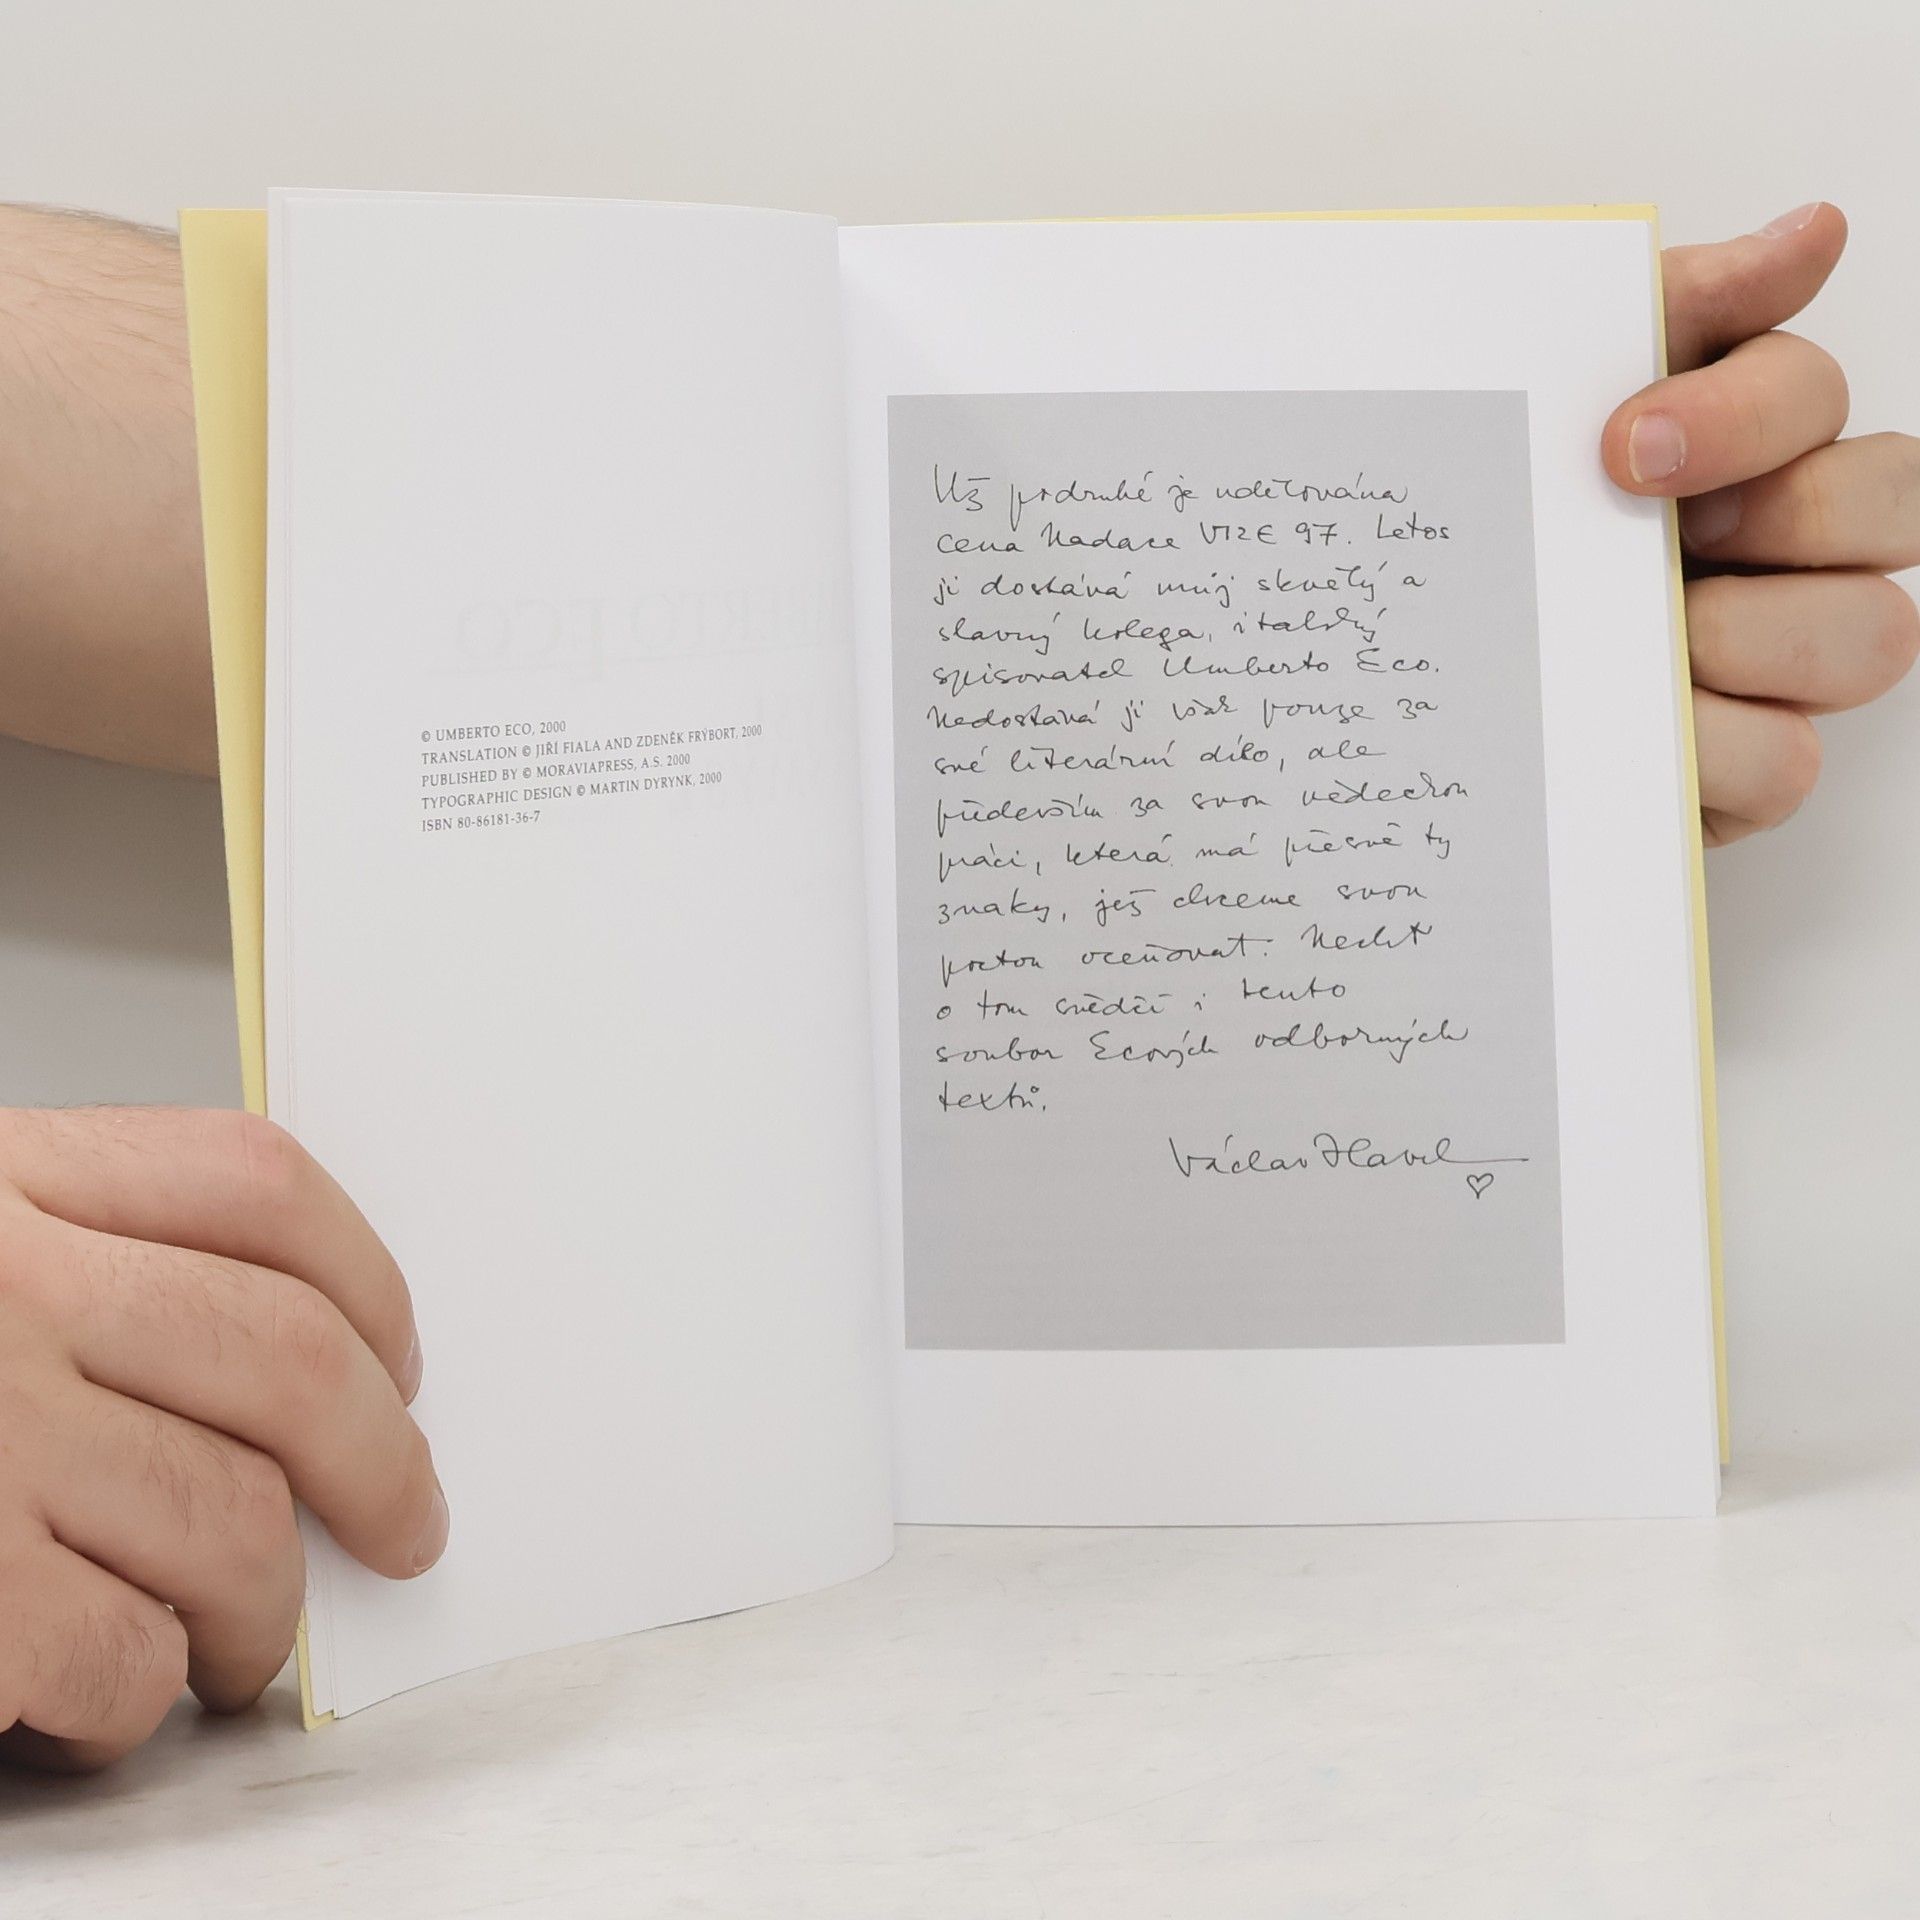 © UMBERTO ECO, 2000
TRANSLATION © JIŘÍ FIALA AND ZDENĚK FRÝBORT, 2000
PUBLISHED BY © MORAVIAPRESS, A.S. 2000
TYPOGRAPHIC DESIGN © MARTIN DYRYNK, 2000
ISBN 80-86181-36-7
Už podruhé je udělována
cena Nadace VIZE 97. Letos
ji dostává můj skvělý a
slavný kolega, italský
spisovatel Umberto Eco.
Nedostává ji však pouze za
své literární dílo, ale
především za svou vědeckou
práci, která má přesně ty
znaky, jež chceme svou
poctou oceňovat. Nechť
o tom svědčí i tento
soubor Ecových odborných
textů.
Václav Havel
♡